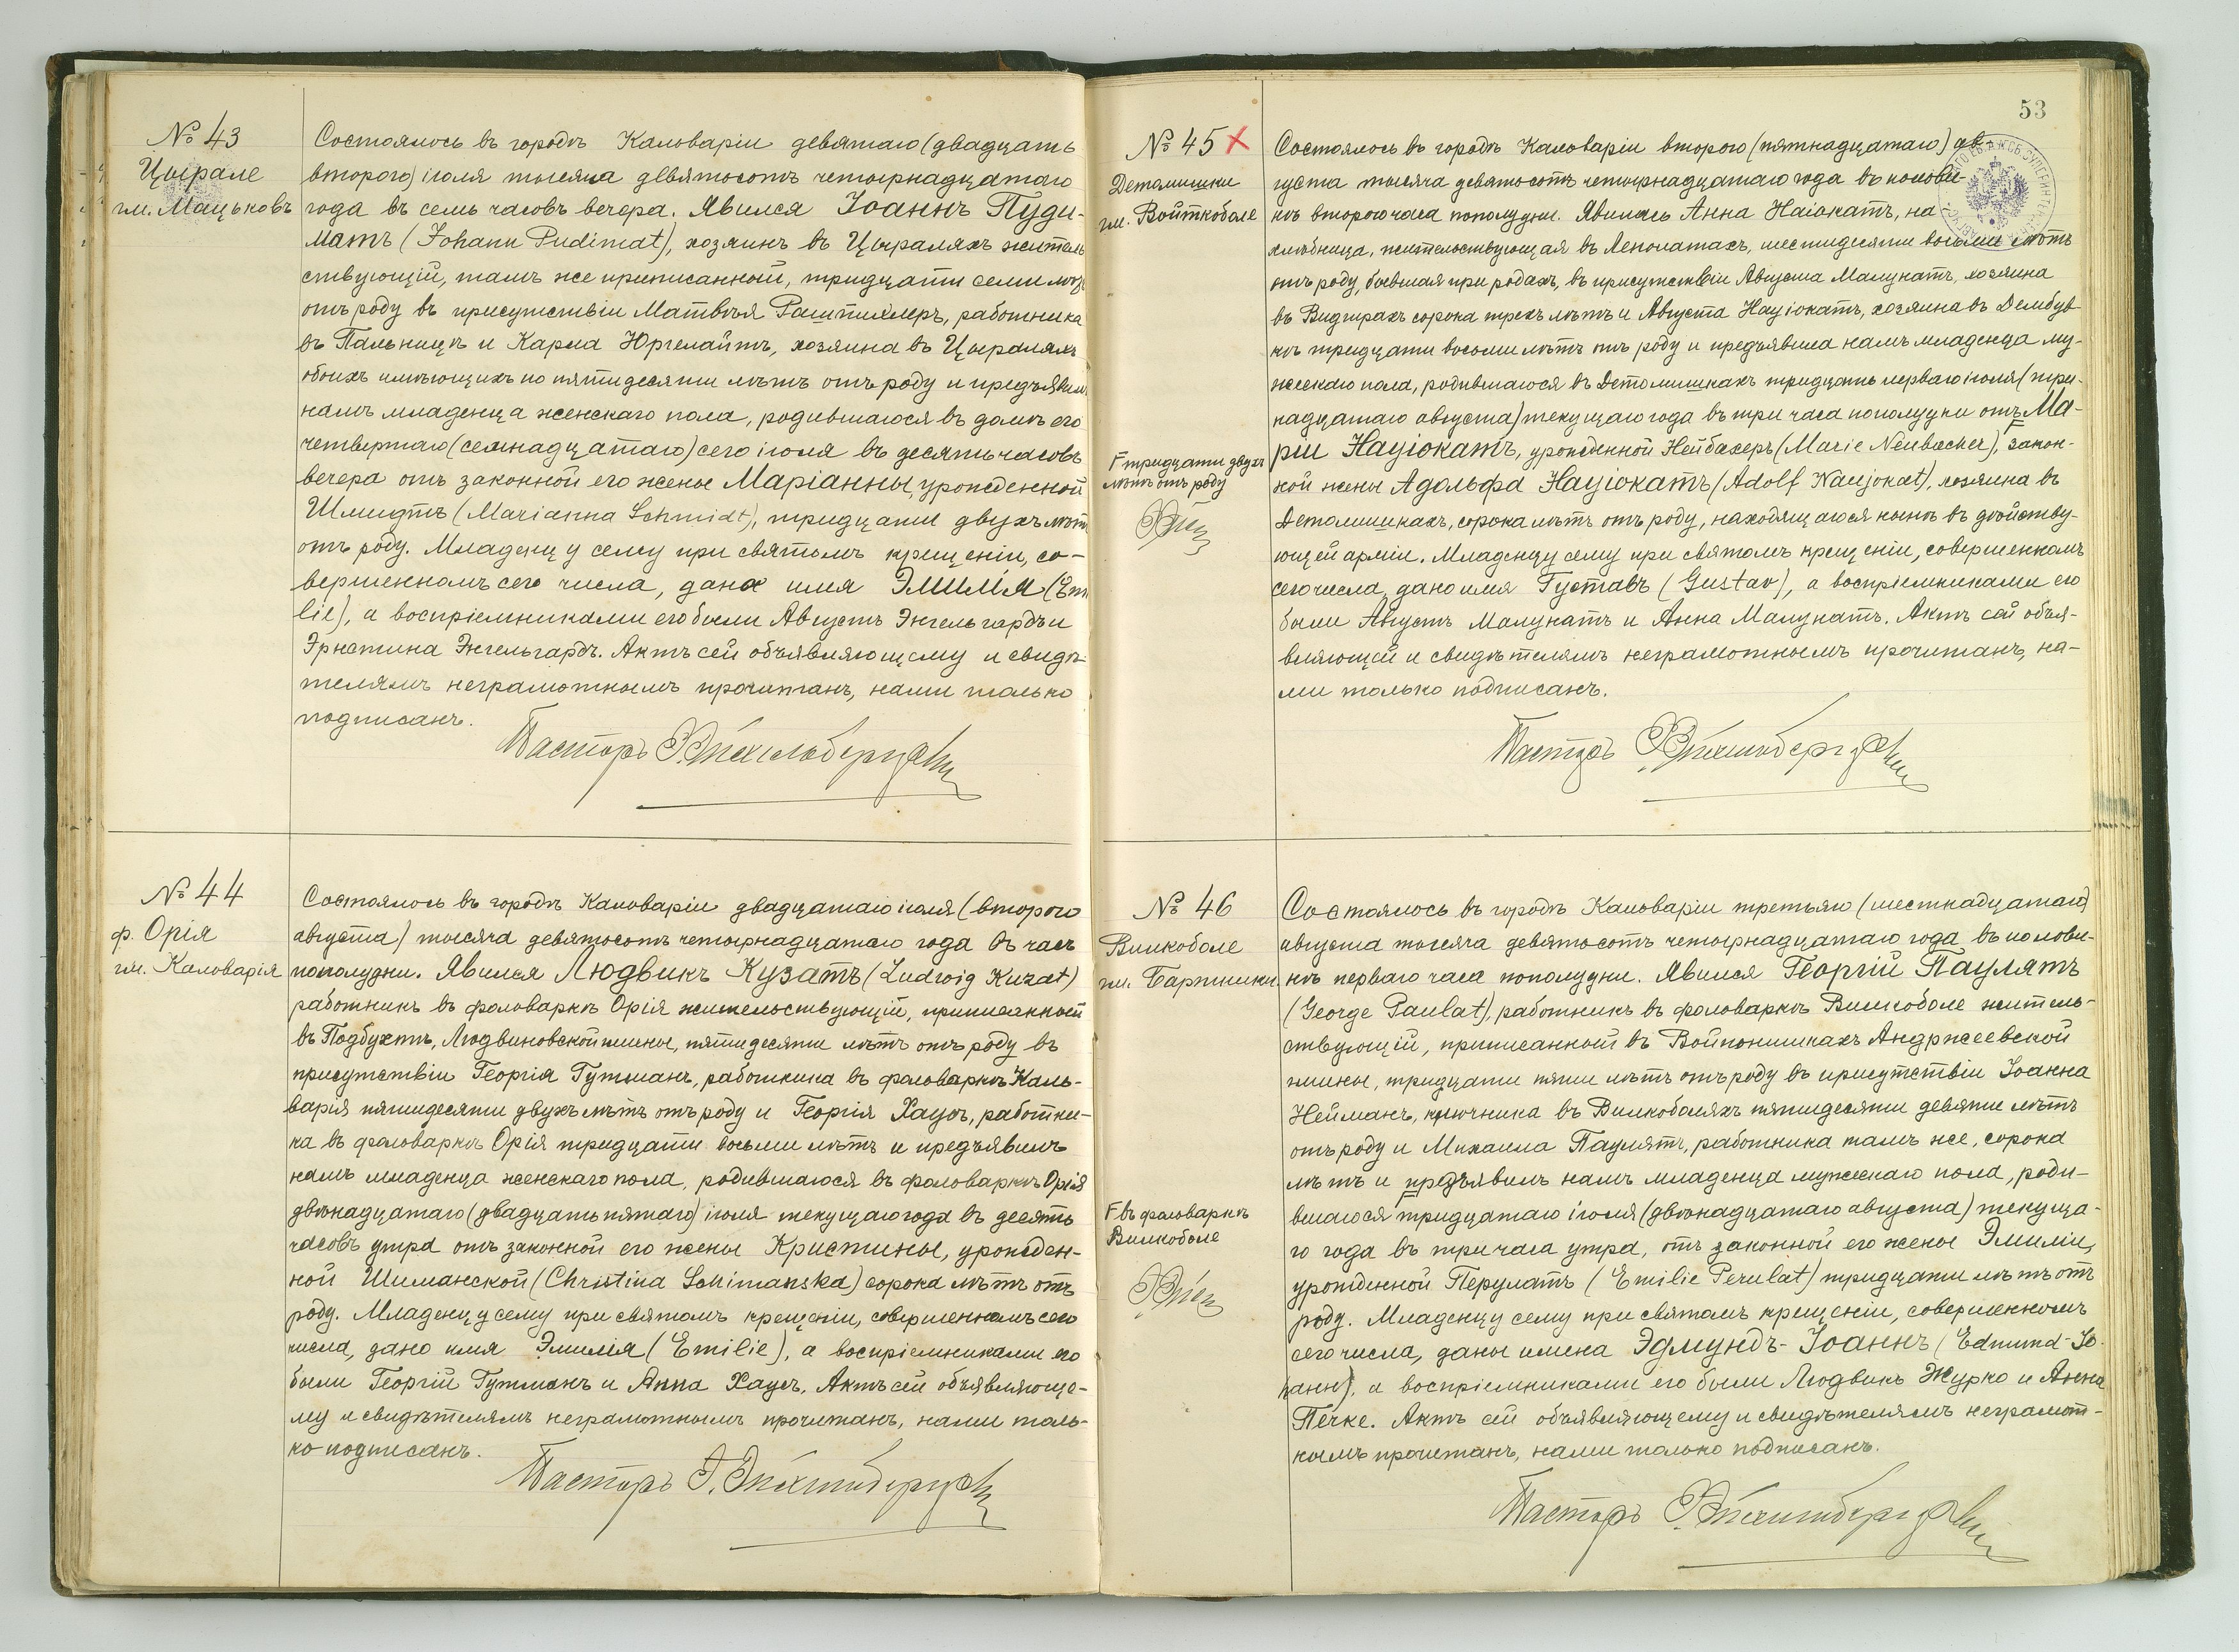 № 43
Цырале
гм. Мацьковъ
Состоялось въ городѣ Кальваріи девятаго (двадцать
второго) іюля тысяча девятьсотъ четырнадцатаго
года въ семь часовъ вечера. Явился Іоаннъ Пуди-
матъ (Johann Pudimat), хозяинъ въ Цыраляхъ житель
ствующій, тамъ же приписанный, тридцати семи лѣтъ
отъ роду въ присутствіи Матвѣя Раштихлеръ, работника
въ Пальницѣ и Карла Юргелайтъ, хозяина въ Цыраляхъ
обоихъ имѣющихъ по пятидесяти лѣтъ отъ роду и предъявилъ
намъ младенца женскаго пола, родившагося въ домѣ его
четвертаго (семнадцатаго) сего іюля въ десять часовъ
вечера отъ законной его жены Маріанны, урожденной
Шмидтъ (Marianna Schmidt), тридцати двухъ лѣтъ
отъ роду. Младенцу сему при святомъ крещеніи, со-
вершенномъ сего числа, дано имя Эмилія (Emi
lie), а воспріемниками его были Августъ Энгельгардъ и
Эрнстина Энгельгардъ. Актъ сей объявляющему и свидѣ-
телямъ неграмотнымъ прочитанъ, нами только
подписанъ.
Пасторъ
№ 44
ф. Орія
гм. Кальварія
Состоялось въ городѣ Кальваріи двадцатаго іюля (второго
августа) тысяча девятьсотъ четырнадцатаго года въ часъ
пополудни. Явился Людвикъ Кузатъ (Ludwig Kuzat)
работникъ въ фольваркѣ Орія жительствующій, приписанный
въ Подбухтѣ, Людвиновской гмины, пятидесяти лѣтъ отъ роду въ
присутствіи Георгія Гутманъ, работника въ фольваркѣ Каль-
варія пятидесяти двухъ лѣтъ отъ роду и Георгія Хаусъ, работни-
ка въ фольваркѣ Орія тридцати восьми лѣтъ и предъявилъ
намъ младенца женскаго пола, родившагося въ фольваркѣ Орія
двѣнадцатаго (двадцать пятаго) іюля текущаго года въ десять
часовъ утра отъ законной его жены Кристины, урожден-
ной Шиманской (Christina Schimanska) сорока лѣтъ отъ
роду. Младенцу сему при святомъ крещеніи, совершенномъ сего
числа, дано имя Эмилія (Emilie), а воспріемниками его
были Георгій Гутманъ и Анна Хаусъ. Актъ сей объявляюще-
му и свидѣтелямъ неграмотнымъ прочитанъ, нами толь-
ко подписанъ.
Пасторъ
53
№ 45 X
Детомишки
гм. Войткоболе
Г тридцати двухъ
лѣтъ отъ роду
Состоялось въ городѣ Кальваріи второго (пятнадцатаго) ав-
густа тысяча девятьсотъ четырнадцатаго года въ полови-
нѣ второго часа пополудни. Явилась Анна Наіокатъ, на
хлѣбница, жительствующая въ Леполатахъ, шестидесяти восьми лѣтъ
отъ роду, бывшая при родахъ, въ присутствіи Августа Малукатъ, хозяина
въ Видгирахъ сорока трехъ лѣтъ и Августа Науіокатъ, хозяина въ Дембув-
кѣ тридцати восьми лѣтъ отъ роду и предъявила намъ младенца му-
жескаго пола, родившагося въ Детомишкахъ тридцать перваго іюля (три-
надцатаго августа) текущаго года въ три часа пополудни отъ Ма-
ріи Науіокатъ, урожденной Нейбахеръ (Marie Neubacher), Г закон-
ной жены Адольфа Науіокатъ (Adolf Naujokat), хозяина въ
Детомишкахъ, сорока лѣтъ отъ роду, находящагося нынѣ въ дѣйству-
ющей арміи. Младенцу сему при святомъ крещеніи, совершенномъ
сего числа, дано имя Густавъ (Gustav), а воспріемниками его
были Августъ Малукатъ и Анна Малукатъ. Актъ сей объя-
вляющей и свидѣтелямъ неграмотнымъ прочитанъ, на-
ми только подписанъ.
Пасторъ
№ 46
Вилкоболе
гм. Бартники.
Г въ фольваркѣ
Вилкоболе
Состоялось въ городѣ Кальваріи третьяго (шестнадцатаго)
августа тысяча девятьсотъ четырнадцатаго года въ полови-
нѣ перваго часа пополудни. Явился Георгій Паулятъ
(George Paulat), работникъ въ фольваркѣ Вилкоболе житель-
ствующій, приписанный въ Войпонишкахъ Андржеевской
гмины, тридцати пяти лѣтъ отъ роду въ присутствіи Іоанна
Нейманъ, ключника въ Вилкоболяхъ пятидесяти девяти лѣтъ
отъ роду и Михаила Паулятъ, работника тамъ же, сорока
лѣтъ и предъявилъ намъ младенца мужескаго пола, роди-
вшагося Г тридцатаго іюля (двѣнадцатаго августа) текуща-
го года въ три часа утра, отъ законной его жены Эмиліи,
урожденной Перулатъ (Emilie Perulat) тридцати лѣтъ отъ
роду. Младенцу сему при святомъ крещеніи, совершенномъ
сего числа, даны имена Эдмундъ-Іоаннъ (Edmund-Jo-
hann), а воспріемниками его были Людвикъ Журко и Анна
Печке. Актъ сей объявляющему и свидѣтелямъ неграмот-
нымъ прочитанъ, нами только подписанъ.
Пасторъ